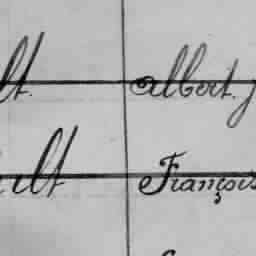 lt. albert. j
ult François